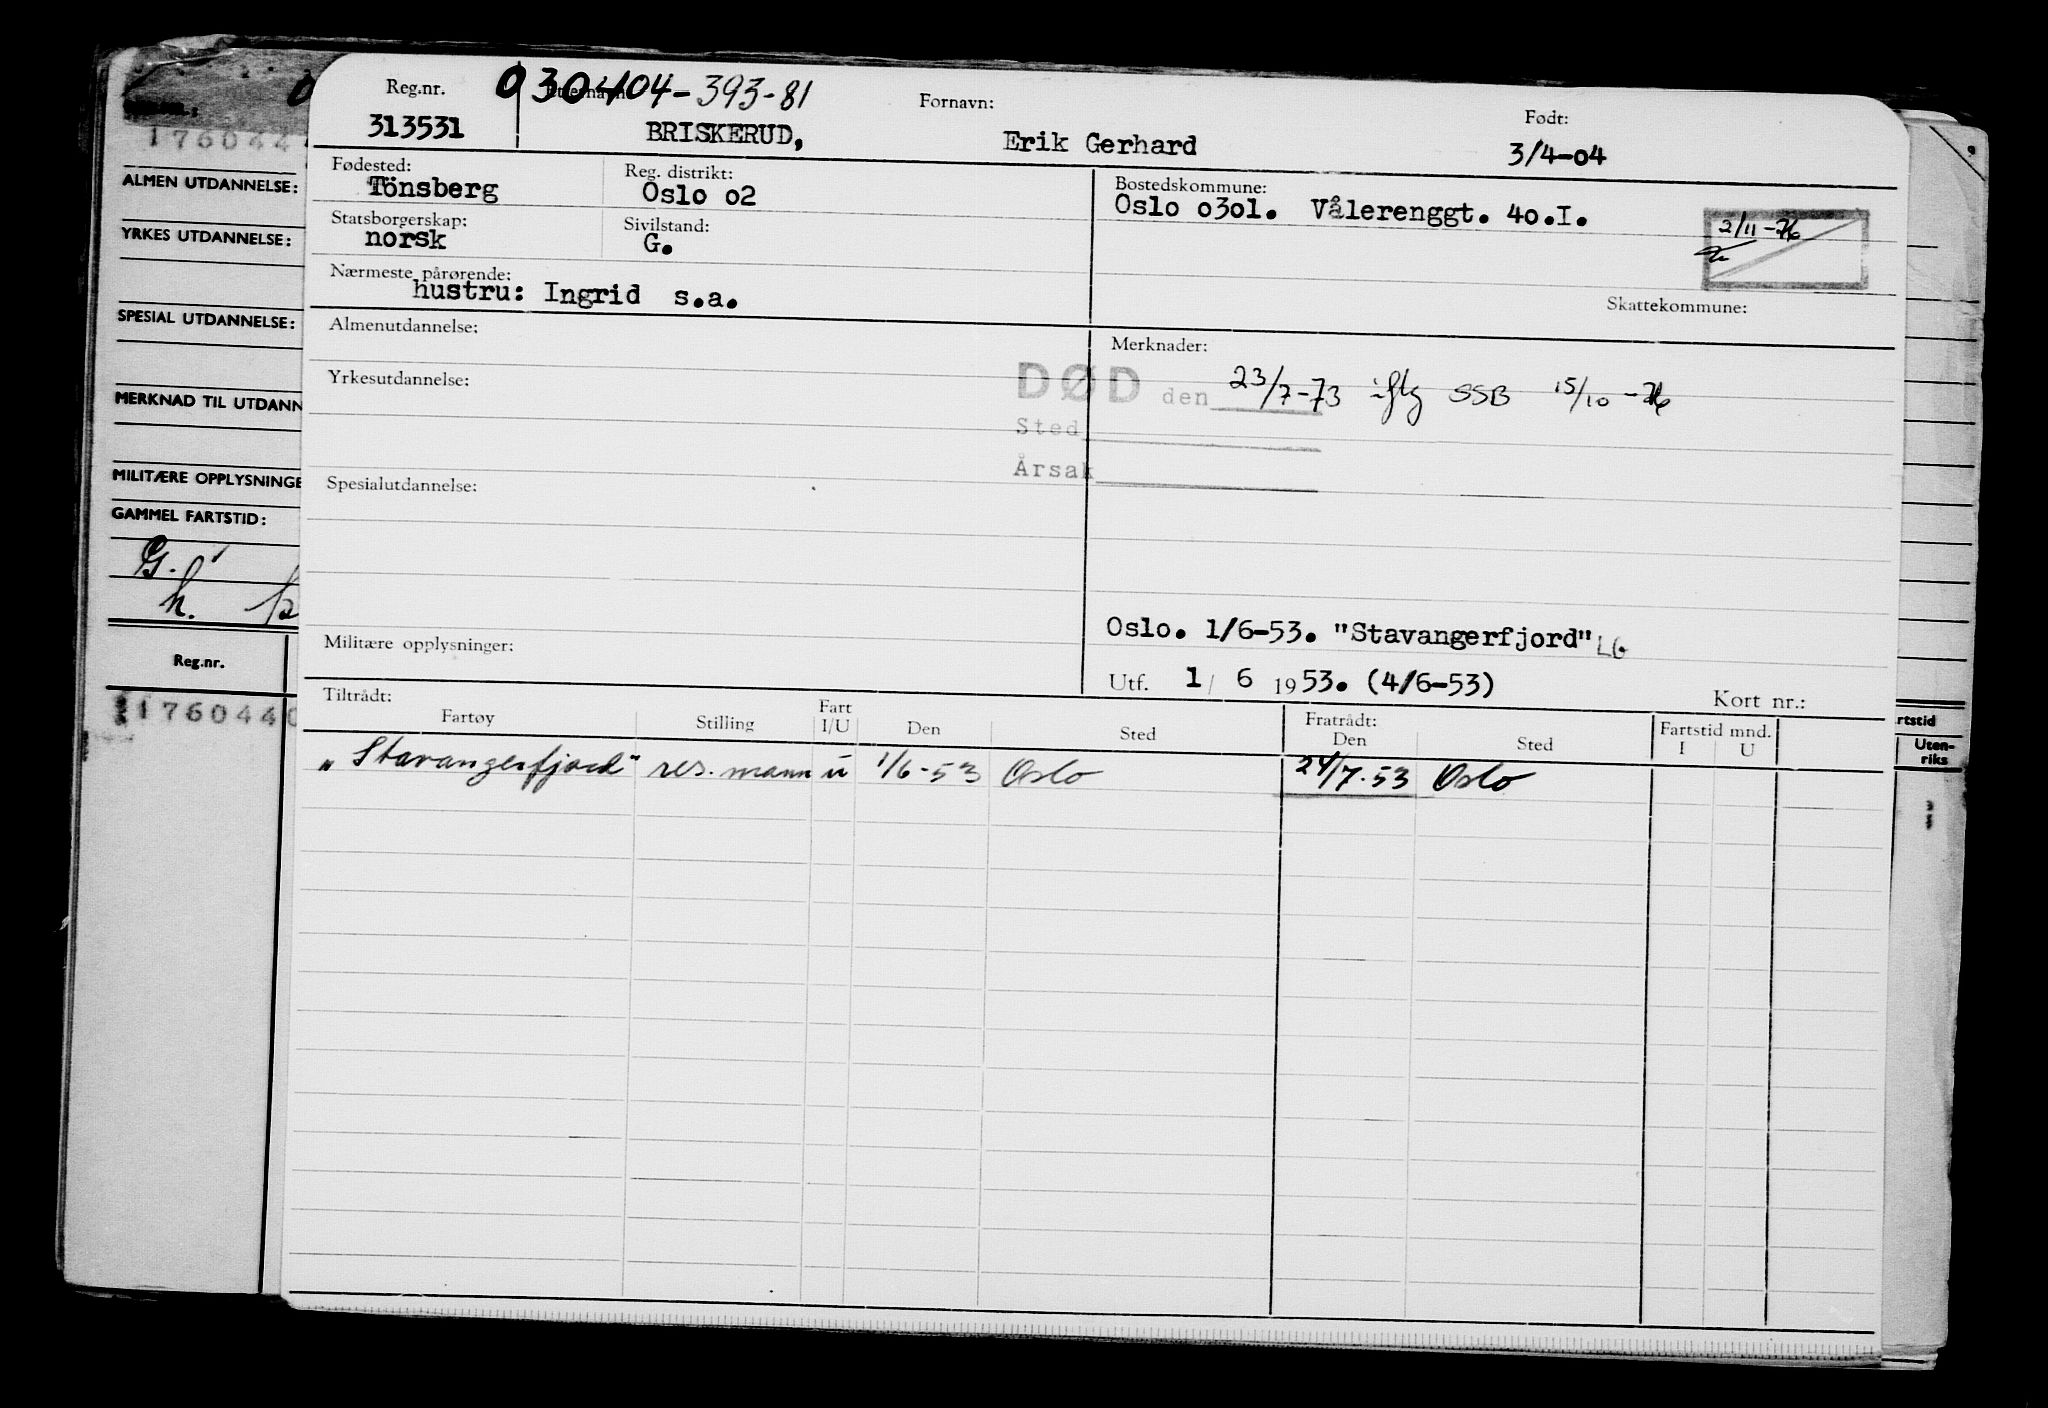 Reg.nr. 030404-393-81 Fornavn: Født:
313531 BRISKERUD, Erik Gerhard 3/4-04
Fødested: Reg. distrikt: Bostedskommune:
Tönsberg Oslo o2 Oslo o3o1. Vålerenggt. 4o.I.
Statsborgerskap: Sivilstand: 2/11-76
norsk G.
Nærmeste pårørende:
hustru: Ingrid s.a.
Skattekommune:
Almenutdannelse: Merknader:
Yrkesutdannelse: DØD den 23/7-73 iflg SSB 15/10-76
Sted
Årsak
Spesialutdannelse:
Oslo. 1/6-53. "Stavangerfjord" LG
Militære opplysninger:
Utf. 1/ 6 1953. (4/6-53)
Kort nr.:
Tiltrådt: Fratrådt: Fartstid mnd.
Fartøy Stilling Fart I/U Den Sted Den Sted I U
"Stavangerfjord" res. mann u 1/6-53 Oslo 24/7-53 Oslo
176044
ALMEN UTDANNELSE:
YRKES UTDANNELSE:
SPESIAL UTDANNELSE:
MERKNAD TIL UTDANN
MILITÆRE OPPLYSNINGE
GAMMEL FARTSTID:
G.
h.
Reg.nr.
1760440
rtstid
Uten-
riks